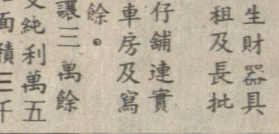 生財器具
租及長批
仔舖連實
車房及寫
餘。
讓三萬餘
純利萬五
面積三千